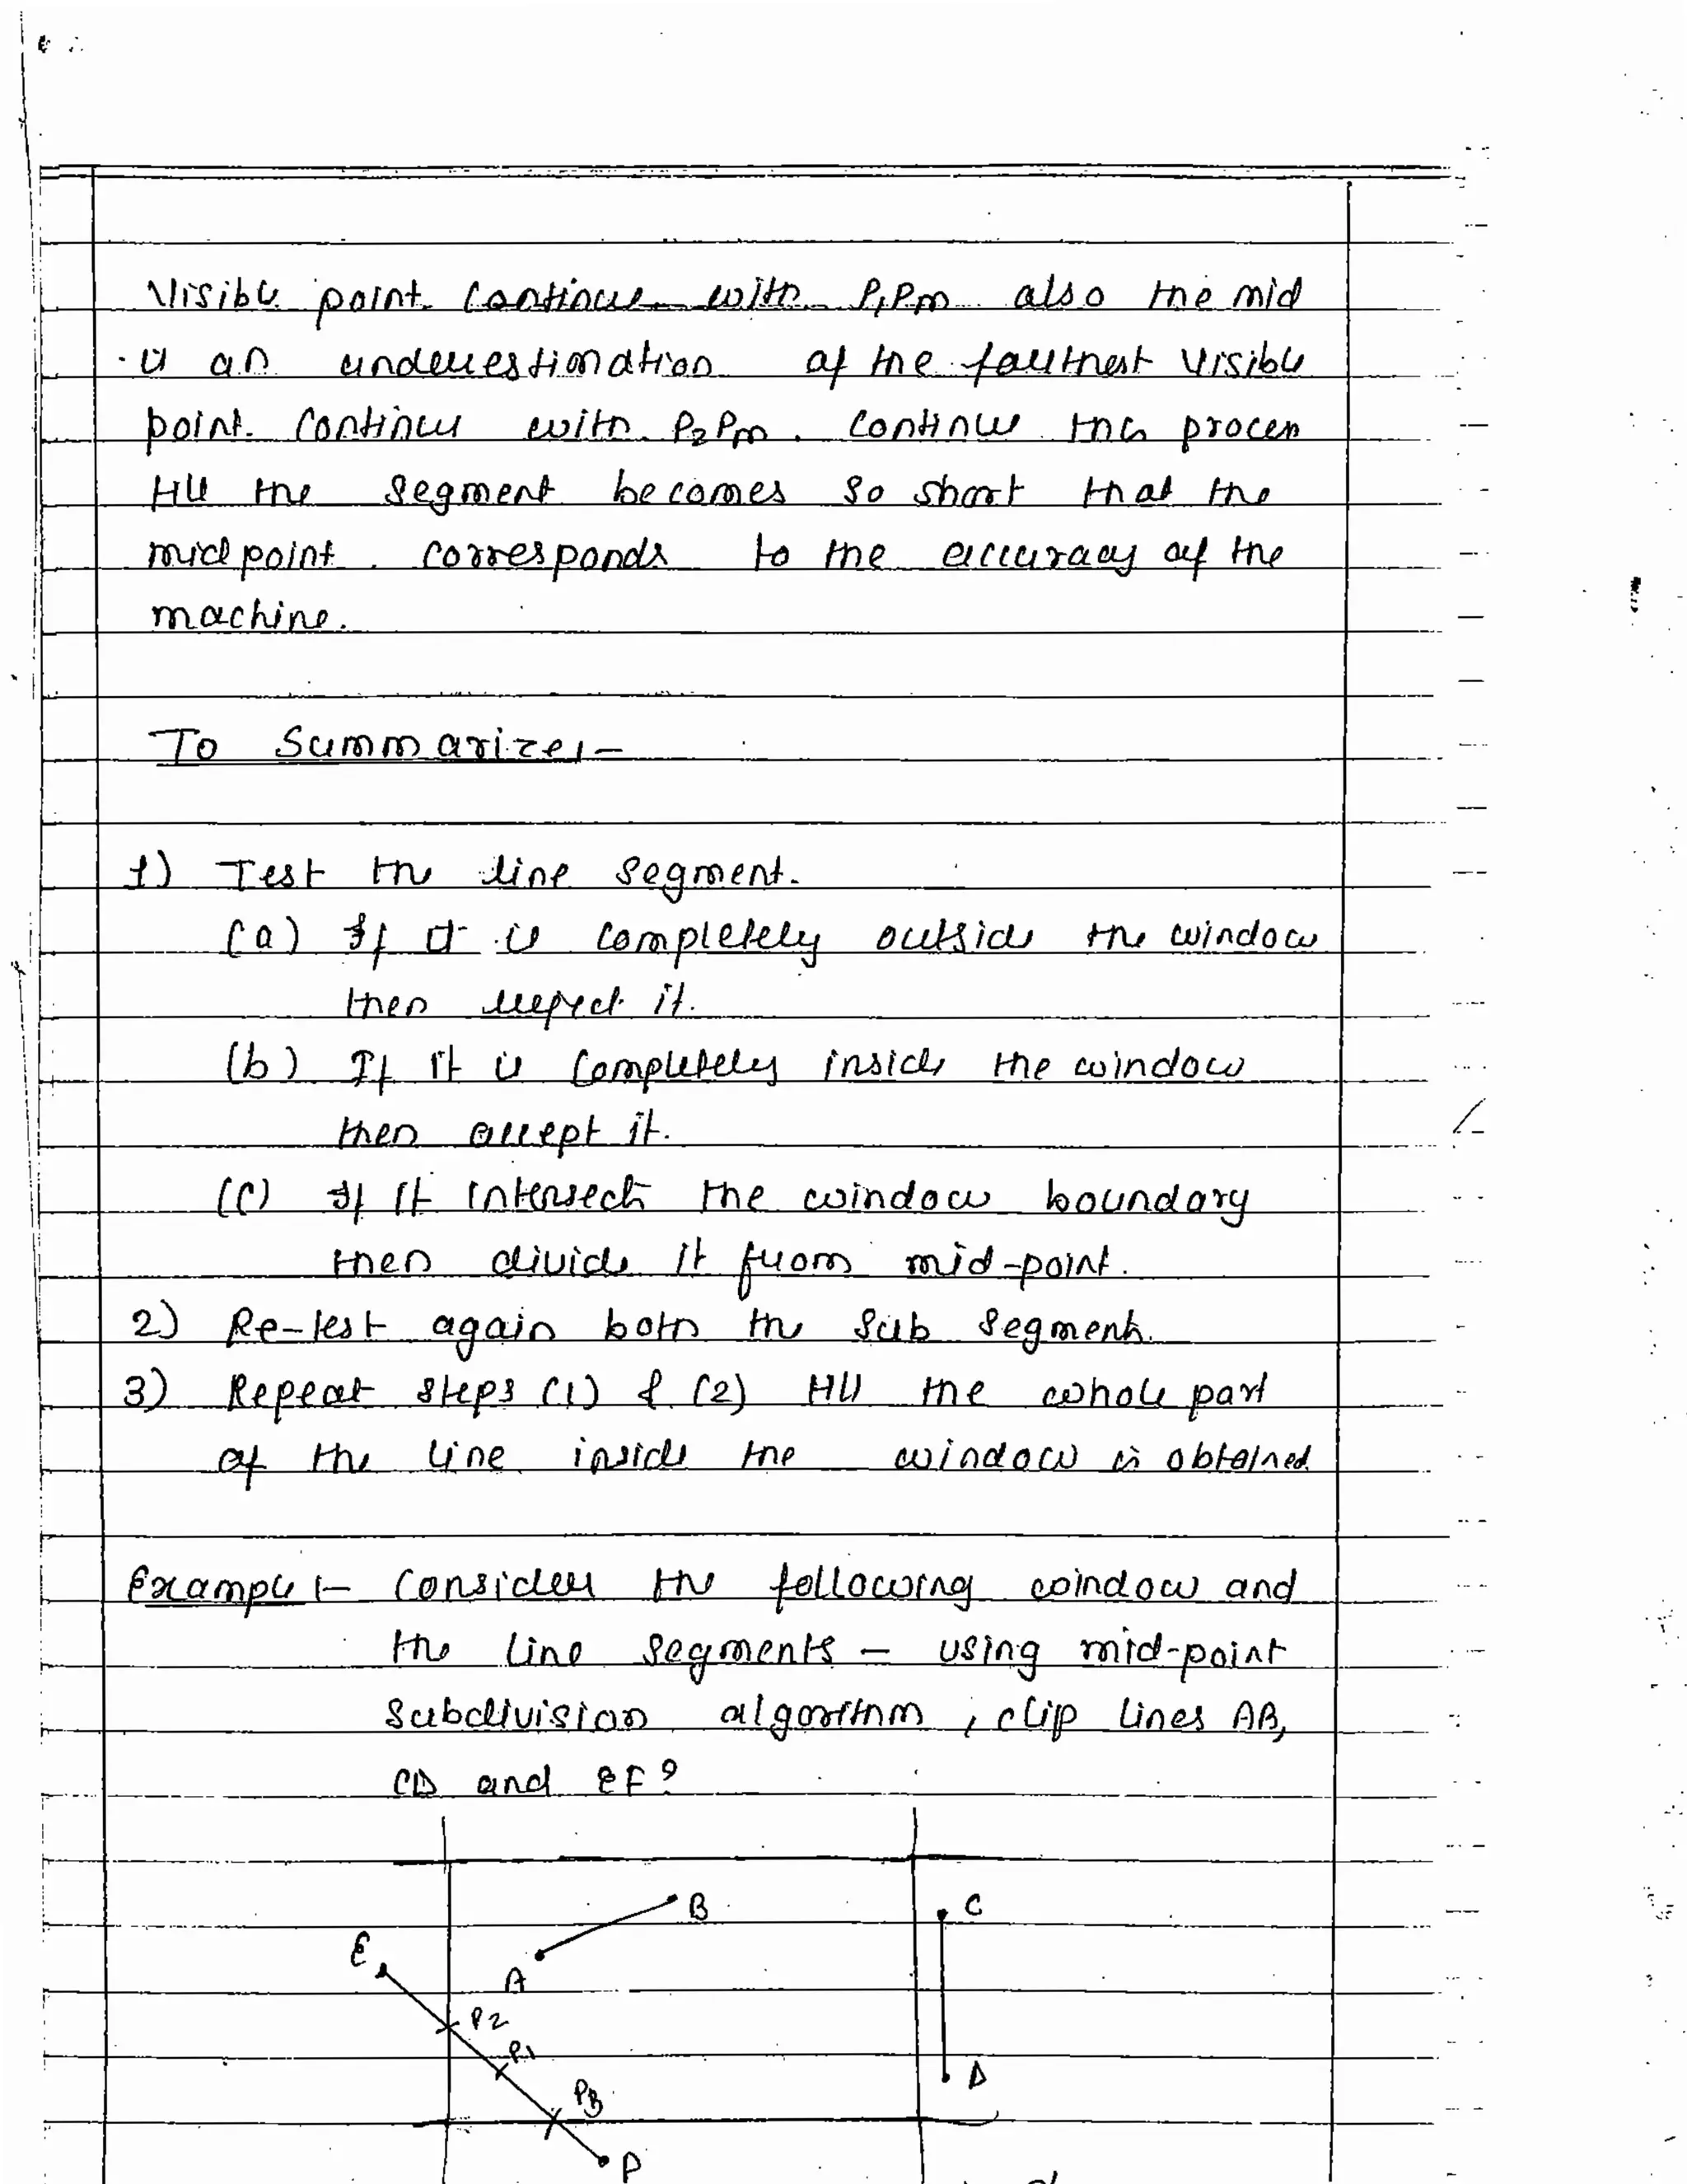 Visible point continue with P₁Pm also the mid
is an underestimation of the farthest visible
point. Continue with P₂Pm. Continue this process
till the segment becomes so short that the
midpoint corresponds to the accuracy of the
machine.
To Summarize:-
1) Test the line segment.
(a) If it is completely outside the window
then reject it.
(b) If it is completely inside the window
then accept it.
(c) If it intersects the window boundary
then divide it from mid-point.
2) Re-test again both the sub segments.
3) Repeat steps (1) & (2) till the whole part
of the line inside the window is obtained.
Example:- Consider the following window and
the line segments - using mid-point
subdivision algorithm, clip lines AB,
CD and EF?
B
C
E
A
P2
P1
D
P3